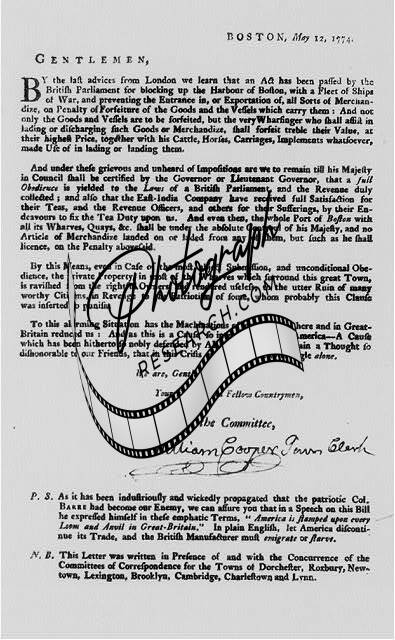 BOSTON, May 12, 1774.
GENTLEMEN,
BY the laſt advices from London we learn that an Act has been paſſed by the
Britiſh Parliament for blocking up the Harbour of Boſton, with a Fleet of Ships
of War, and preventing the Entrance in, or Exportation of, all Sorts of Merchan-
dize, on Penalty of Forfeiture of the Goods and the Veſſels which carry them: And not
only the Goods and Veſſels are to be forfeited, but the very Wharfinger who ſhall aſſiſt in
lading or diſcharging ſuch Goods or Merchandize, ſhall forfeit treble their Value, at
their higheſt Price, together with his Cattle, Horſes, Carriages, Implements whatſoever,
made Uſe of in lading or landing them.
And under theſe grievous and unheard of Impoſitions are we to remain till his Majeſty
in Council ſhall be certified by the Governor or Lieutenant Governor, that a full
Obedience is yielded to the Laws of a Britiſh Parliament, and the Revenue duly
collected; and alſo that the Eaſt-India Company have received full Satisfaction for
their Teas, and the Revenue Officers, and others for their Sufferings, by their En-
deavours to fix the Tea Duty upon us. And even then, the whole Port of Boſton with
all its Wharves, Quays, &c. ſhall be under the abſolute of his Majeſty, and no
Article of Merchandize landed on or laded from any them, but ſuch as he ſhall
licence, on the Penalty aboveſaid.
By this Means, even in Caſe of the moſt Submiſſion, and unconditional Obe-
dience, the private Property which ſurround this great Town,
is raviſhed from the right uſeleſs to the utter Ruin of many
worthy Citizens, in Revenge Patriotiſm of ſome, whom probably this Clauſe
was inſerted
To this alarming Situation has the there and in Great-
Britain reduced us: And as this is a Cauſe America—A Cauſe
which has been hitherto nobly defended by a Thought ſo
diſhonorable to our Friends, that in this Criſis alone.
We are,
Fellow Countrymen,
the Committee,
William Cooper Town Clerk
Photographs
RESEARCH.COM
P. S. As it has been induſtriouſly and wickedly propagated that the patriotic Col.
BARRE had become our Enemy, we can aſſure you that in a Speech on this Bill
he expreſſed himſelf in theſe emphatic Terms, "America is ſtamped upon every
Loom and Anvil in Great-Britain." In plain Engliſh, let America diſconti-
nue its Trade, and the Britiſh Manufacturer muſt emigrate or ſtarve.
N. B. This Letter was written in Preſence of and with the Concurrence of the
Committees of Correſpondence for the Towns of Dorcheſter, Roxbury, New-
town, Lexington, Brooklyn, Cambridge, Charleſtown and Lynn.